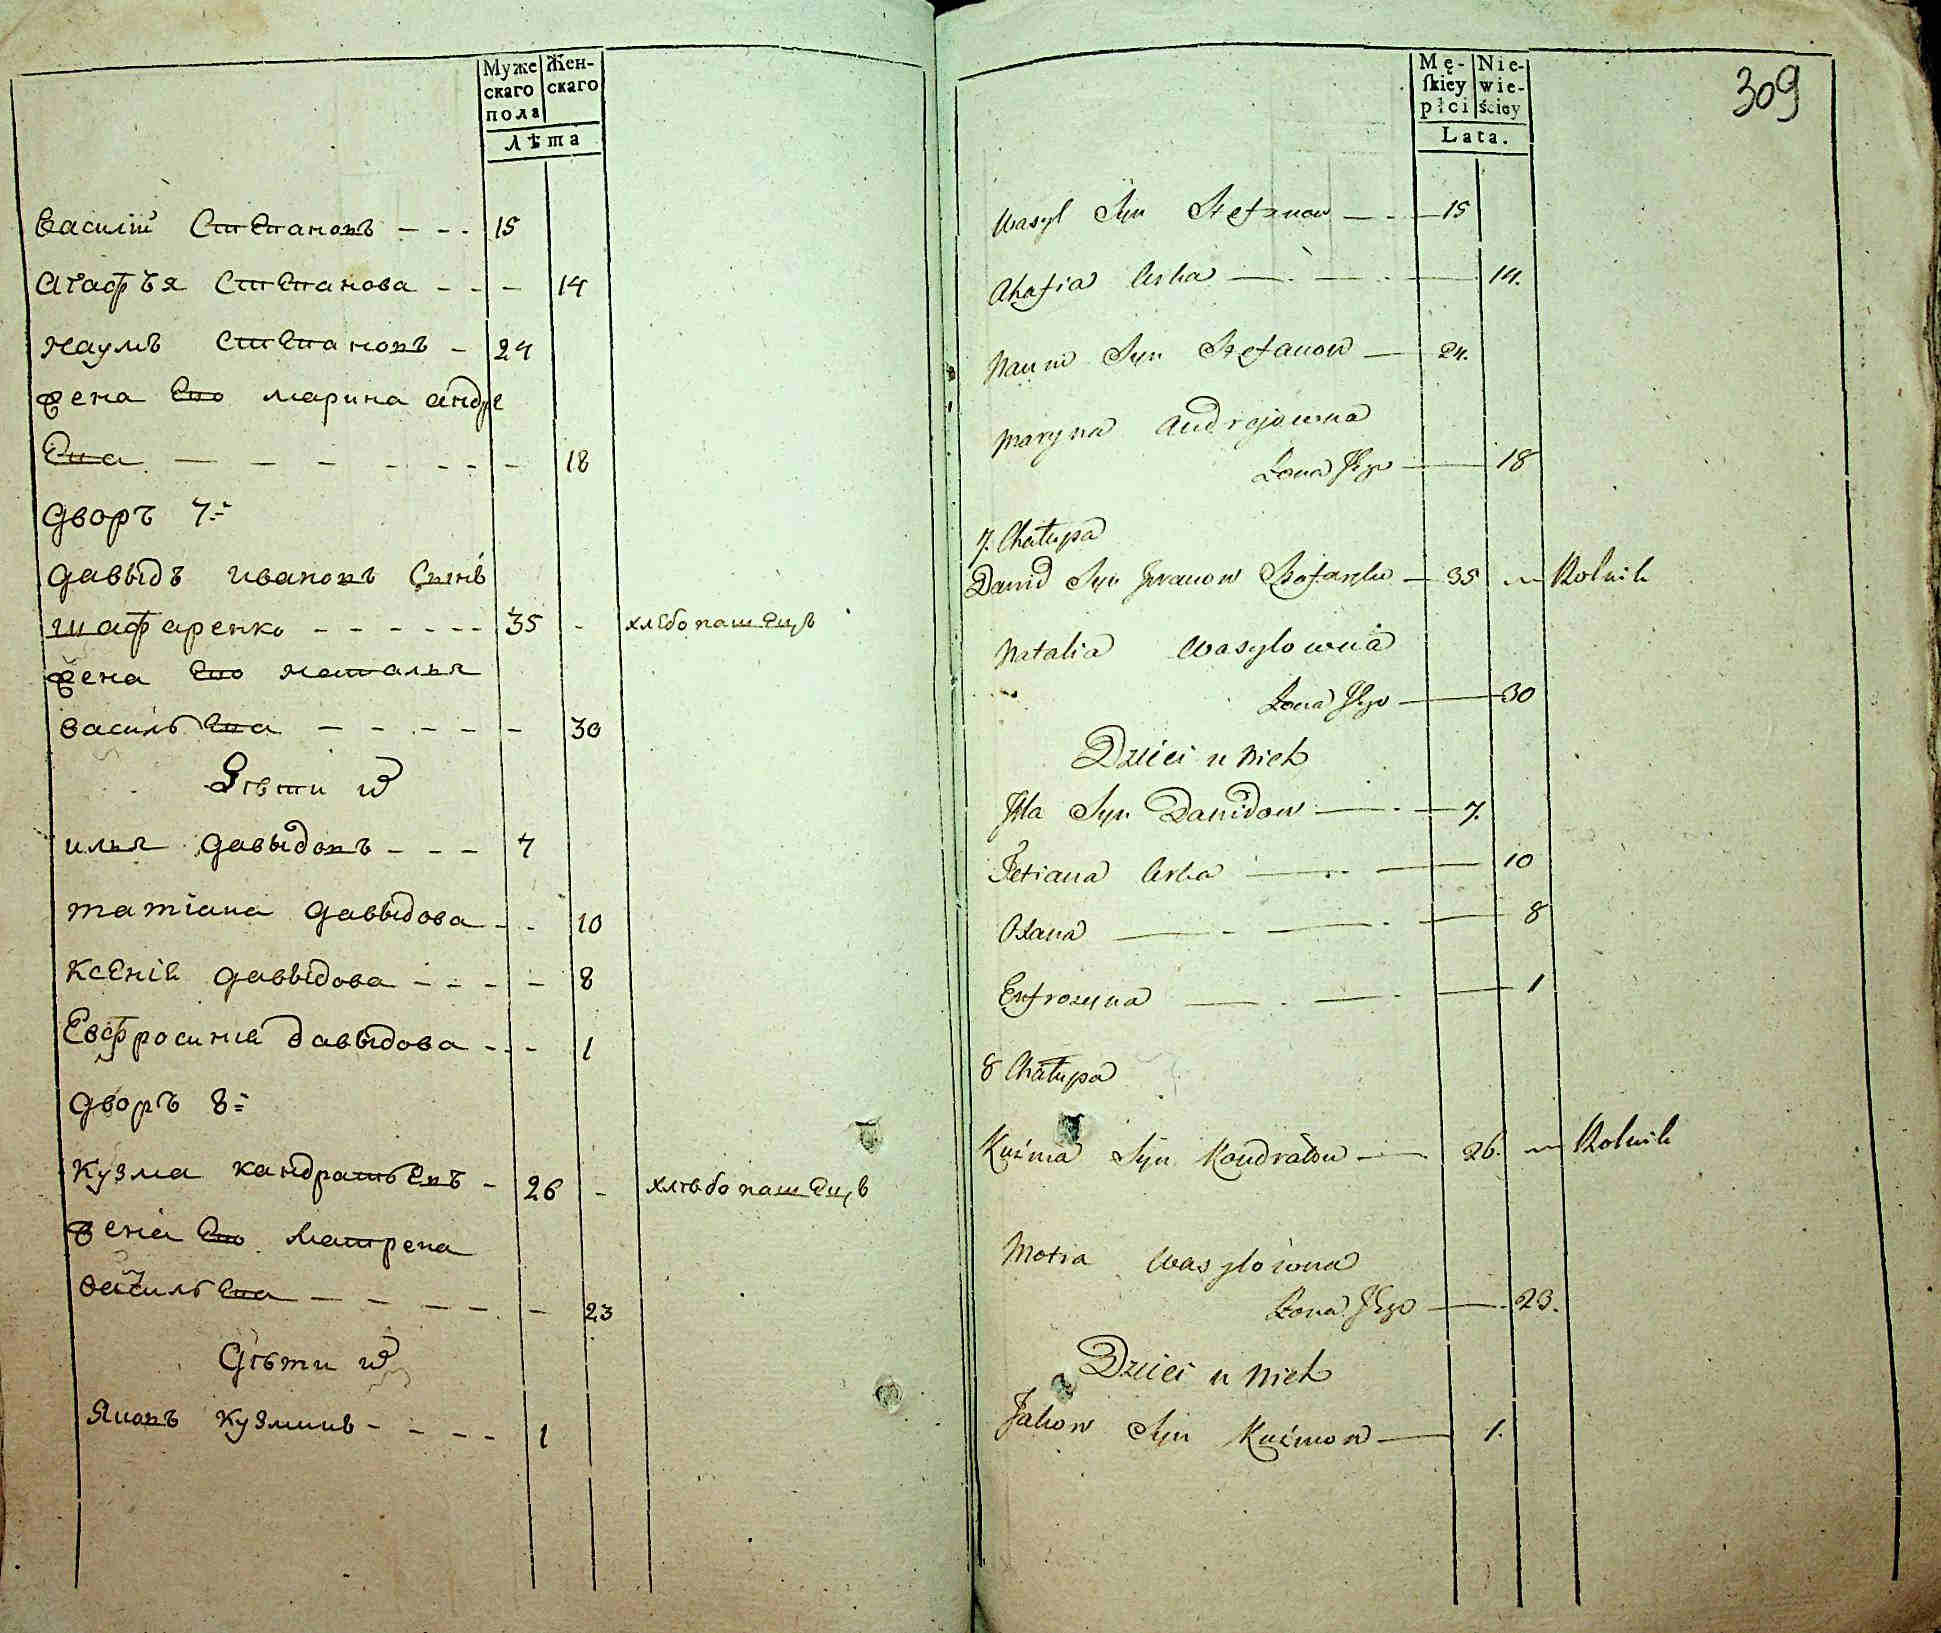 Муже
скаго
пола
Жен-
скаго
лѣта
василій Степановъ - - - 15
агафья Степанова - - - 14
наумъ Степановъ - 24
жена Его марина андре
Ева - - - - - - - 18
дворъ 7:
давыдъ ивановъ Сынъ
шафаренко - - - - - - 35 - хлебопашецъ
жена Его наталья
васильева - - - - - 30
Дѣти их
илья давыдовъ - - - 7
татіана давыдова - - 10
Ксенія давыдова - - - - 8
Евфросиния давыдова - - - 1
дворъ 8:
Кузма кандратьевъ - 26 - хлѣбопашецъ
жена Его Матрена
васильева - - - - - 23
Дѣти их
Яковъ кузминъ - - - - 1
309
Mę-
skiey
płci
Nie-
wie-
ściey
Lata.
Wasyl Syn Stefanow - 15
Ahafia Corka - 14.
Naum Syn Stefanow - 24.
Maryna Andrejowna
Żona Jego - 18
7. Chałupa
Dawid Syn Iwanow - 35 - Rolnik
Natalia Wasylowna
Żona Jego - 30
Dzieci u Nich
Illa Syn Dawidow - 7.
Tetiana Corka - 10
Oxana - 8
Eufrozyna - 1
8 Chałupa
Kuźma Syn Kondratow - 26. - Rolnik
Motra Wasylowna
Żona Jego - 23.
Dzieci u Nich
Jakow Syn Kuźmow - 1.